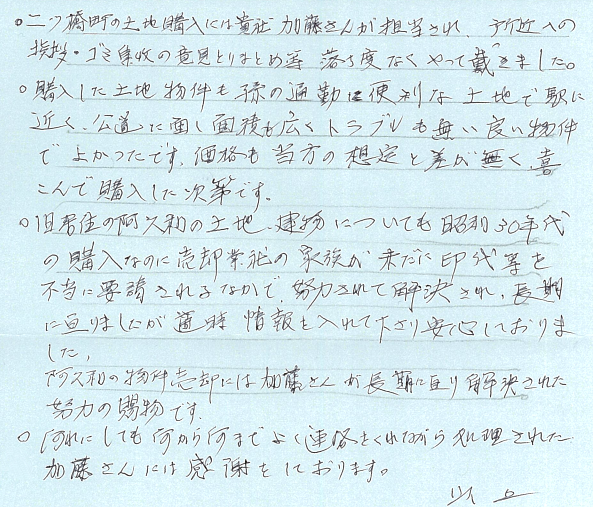 ○二ツ橋町の土地購入には貴社 加藤さんが担当され、予附近への
挨拶・ゴミ集収の意見とりまとめ等 落ち度なくやって戴きました。
○購入した土地物件も孫の通勤に便利な土地で駅に
近く、公道に面し面積も広くトラブルも無い良い物件
でよかったです。価格も当方の想定と差が無く、喜
こんで購入した次第です。
○旧居住の阿久和の土地、建物についても昭和30年代
の購入なのに売却業社の家族が未だに印代等を
不当に要請されるなかで、努力されて解決され、長期
に亘りましたが適時 情報を入れて下さり安心しておりま
した。
阿久和の物件売却には加藤さんが長期に亘り解決された
努力の賜物です。
○何れにしても何から何までよく連絡をくれながら処理された
加藤さんには感謝をしております。
以上